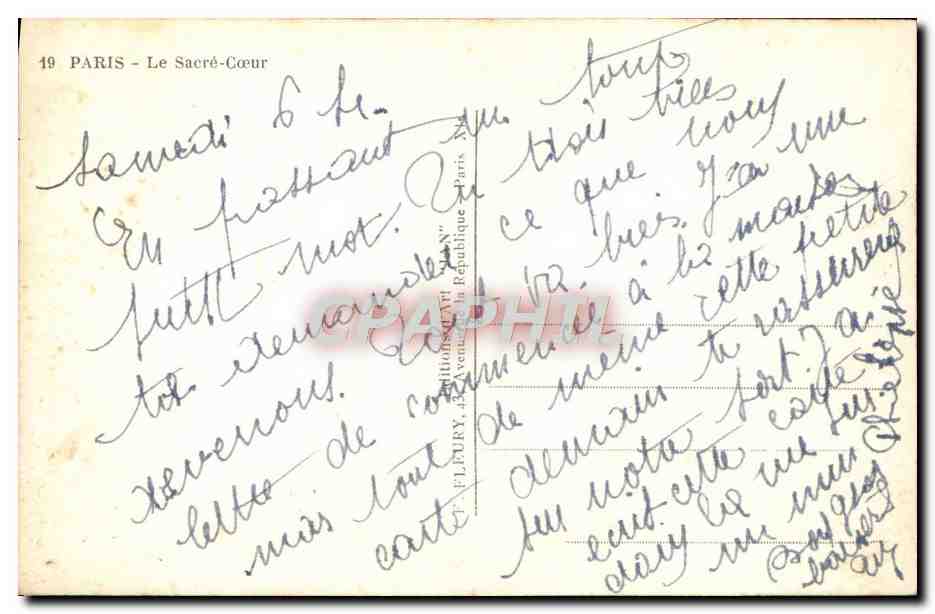 19 PARIS - Le Sacré-Cœur
Samedi 6 h.
En passant un tout
petit mot. Tu dois très
tot demander ce que nous
revenons. tout va bien. J'ai une
lettre de commencée à la maison
mais tout de même cette petite
carte demain te rassurera
sur notre sort. J'ai
écrit cette carte
dans la rue sur
un mur
gros
baisers
F. FLEURY, 43 Avenue de la République Paris
Editions d'Art
CPAPHIL